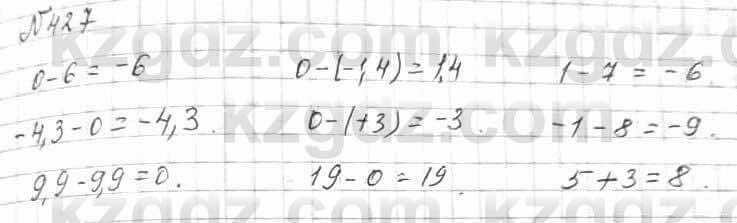 №427
0-6=-6 0-(-1,4)=1,4 1-7=-6
-4,3-0=-4,3. 0-(+3)=-3. -1-8=-9.
9,9-9,9=0. 19-0=19. 5+3=8.
kzgdz.com kzgdz.com